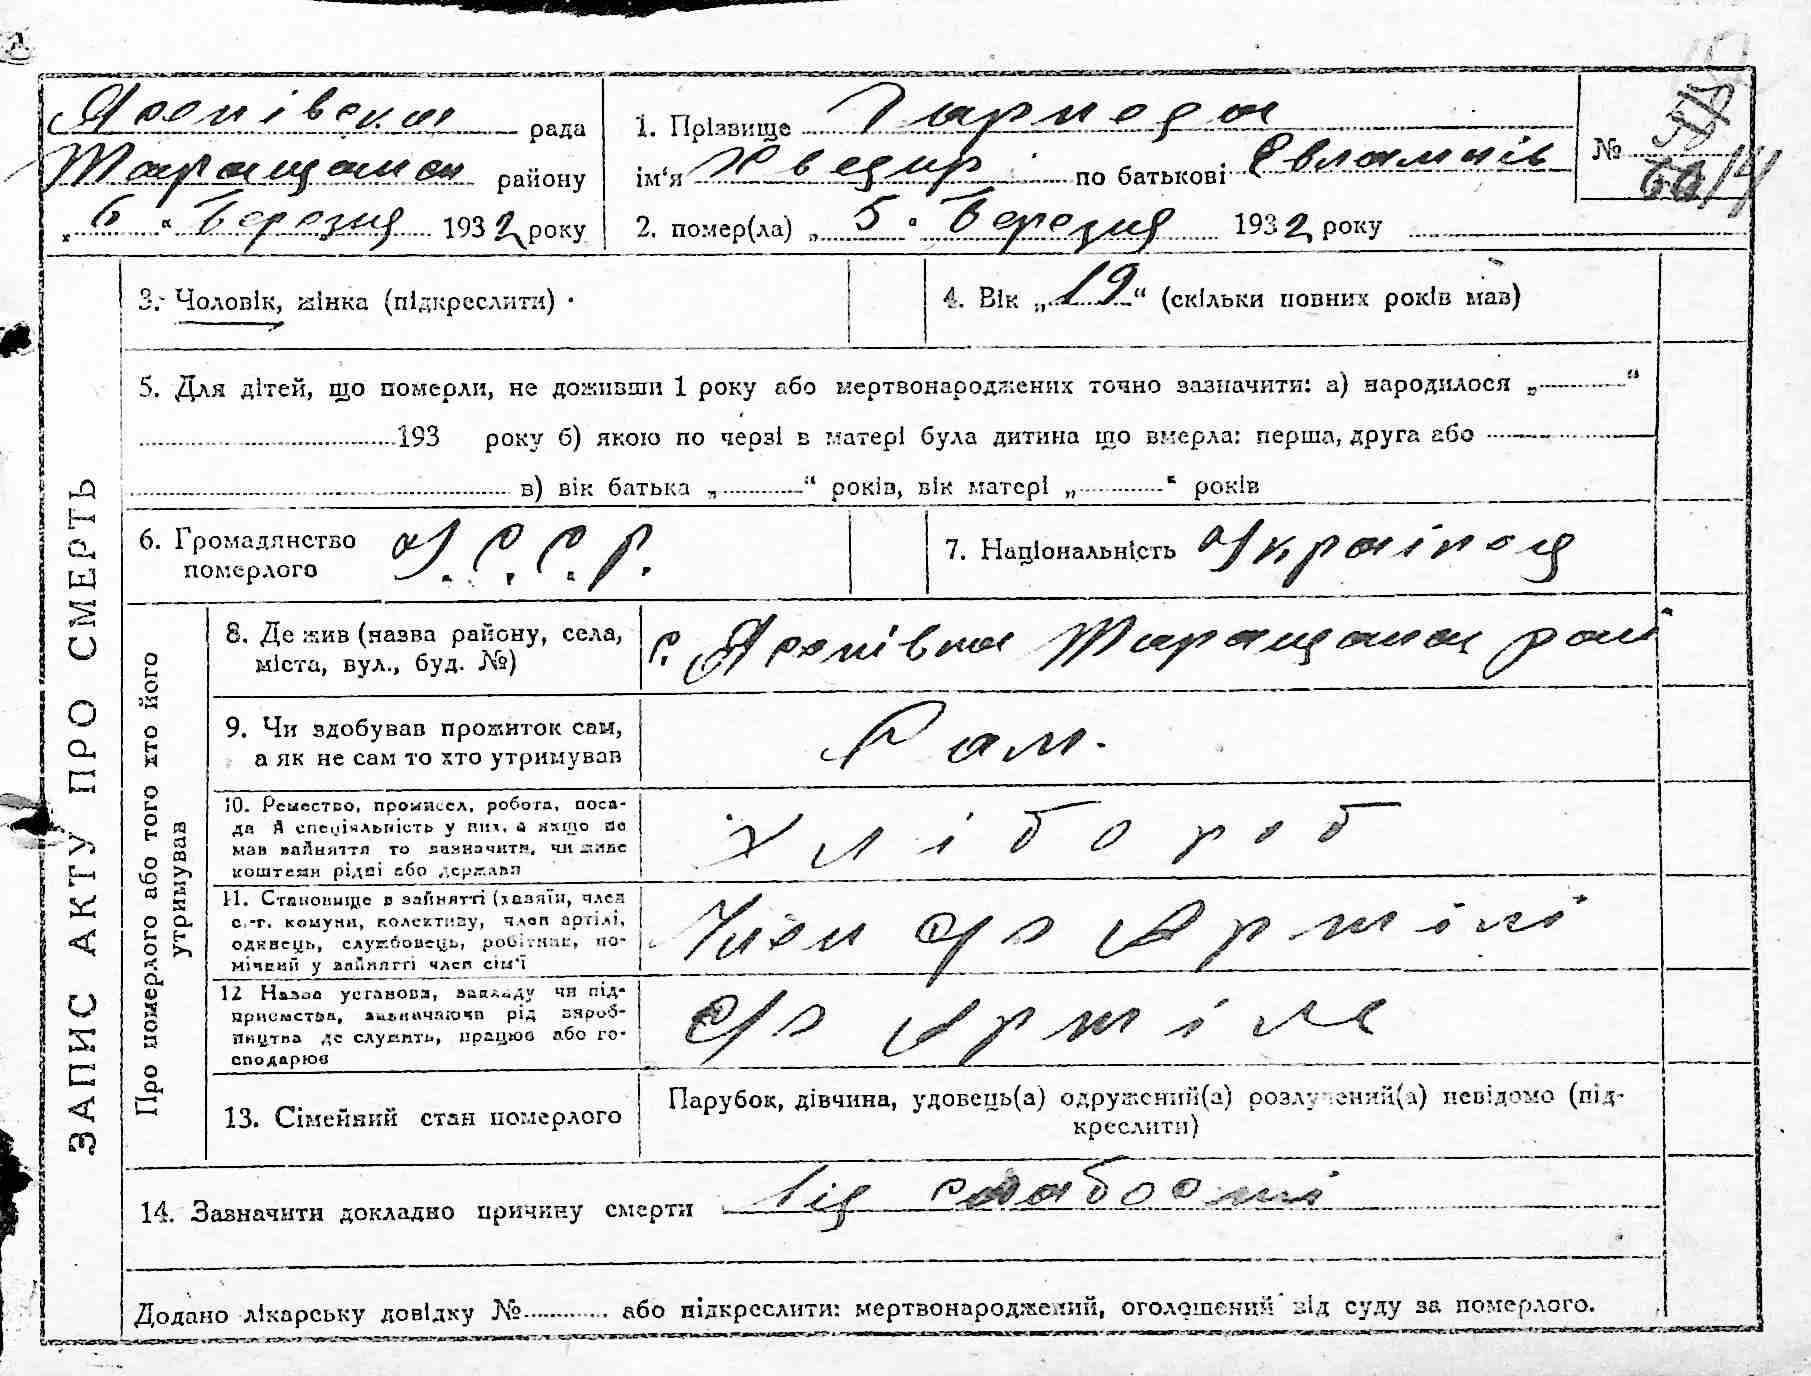 Лісенівська рада
Таращанськ району
„6“ Березня 1932 року
1. Прізвище
ім'я Хведир по батькові Євлампів
2. помер(ла) „5“ Березня 1932 року
№
ЗАПИС АКТУ ПРО СМЕРТЬ
3. Чоловік, жінка (підкреслити)
4. Вік „19“ (скільки повних років мав)
5. Для дітей, що померли, не доживши 1 року або мертвонароджених точно зазначити: а) народилося „ “
193 року б) якою по черзі в матері була дитина що вмерла: перша, друга або
в) вік батька „ “ років, вік матері „ “ років
6. Громадянство
померлого
У.С.С.Р.
7. Національність Українец
Про померлого або того хто його
утримував
8. Де жив (назва району, села,
міста, вул., буд. №)
с. Таращанськ рай
9. Чи здобував прожиток сам,
а як не сам то хто утримував
Сам.
10. Ремество, промисел, робота, поса-
да й спеціяльність у них, а якщо не
мав зайняття то зазначити, чи живе
коштами рідні або держави
хлібороб
11. Становище в зайнятті (хазяїн, член
с.-г. комуни, колективу, член артілі,
одинець, службовець, робітник, по-
мічний у зайнятті член сім'ї
Член с/г Артілі
12 Назва установи, закладу чи під-
приємства, зазначаючи рід вироб-
ництва де служить, працює або го-
сподарює
с/г Артіле
13. Сімейний стан померлого
Парубок, дівчина, удовець(а) одружений(а) розлучений(а) невідомо (під-
креслити)
14. Зазначити докладно причину смерти Від слабості
Додано лікарську довідку № або підкреслити: мертвонароджений, оголошений від суду за померлого.